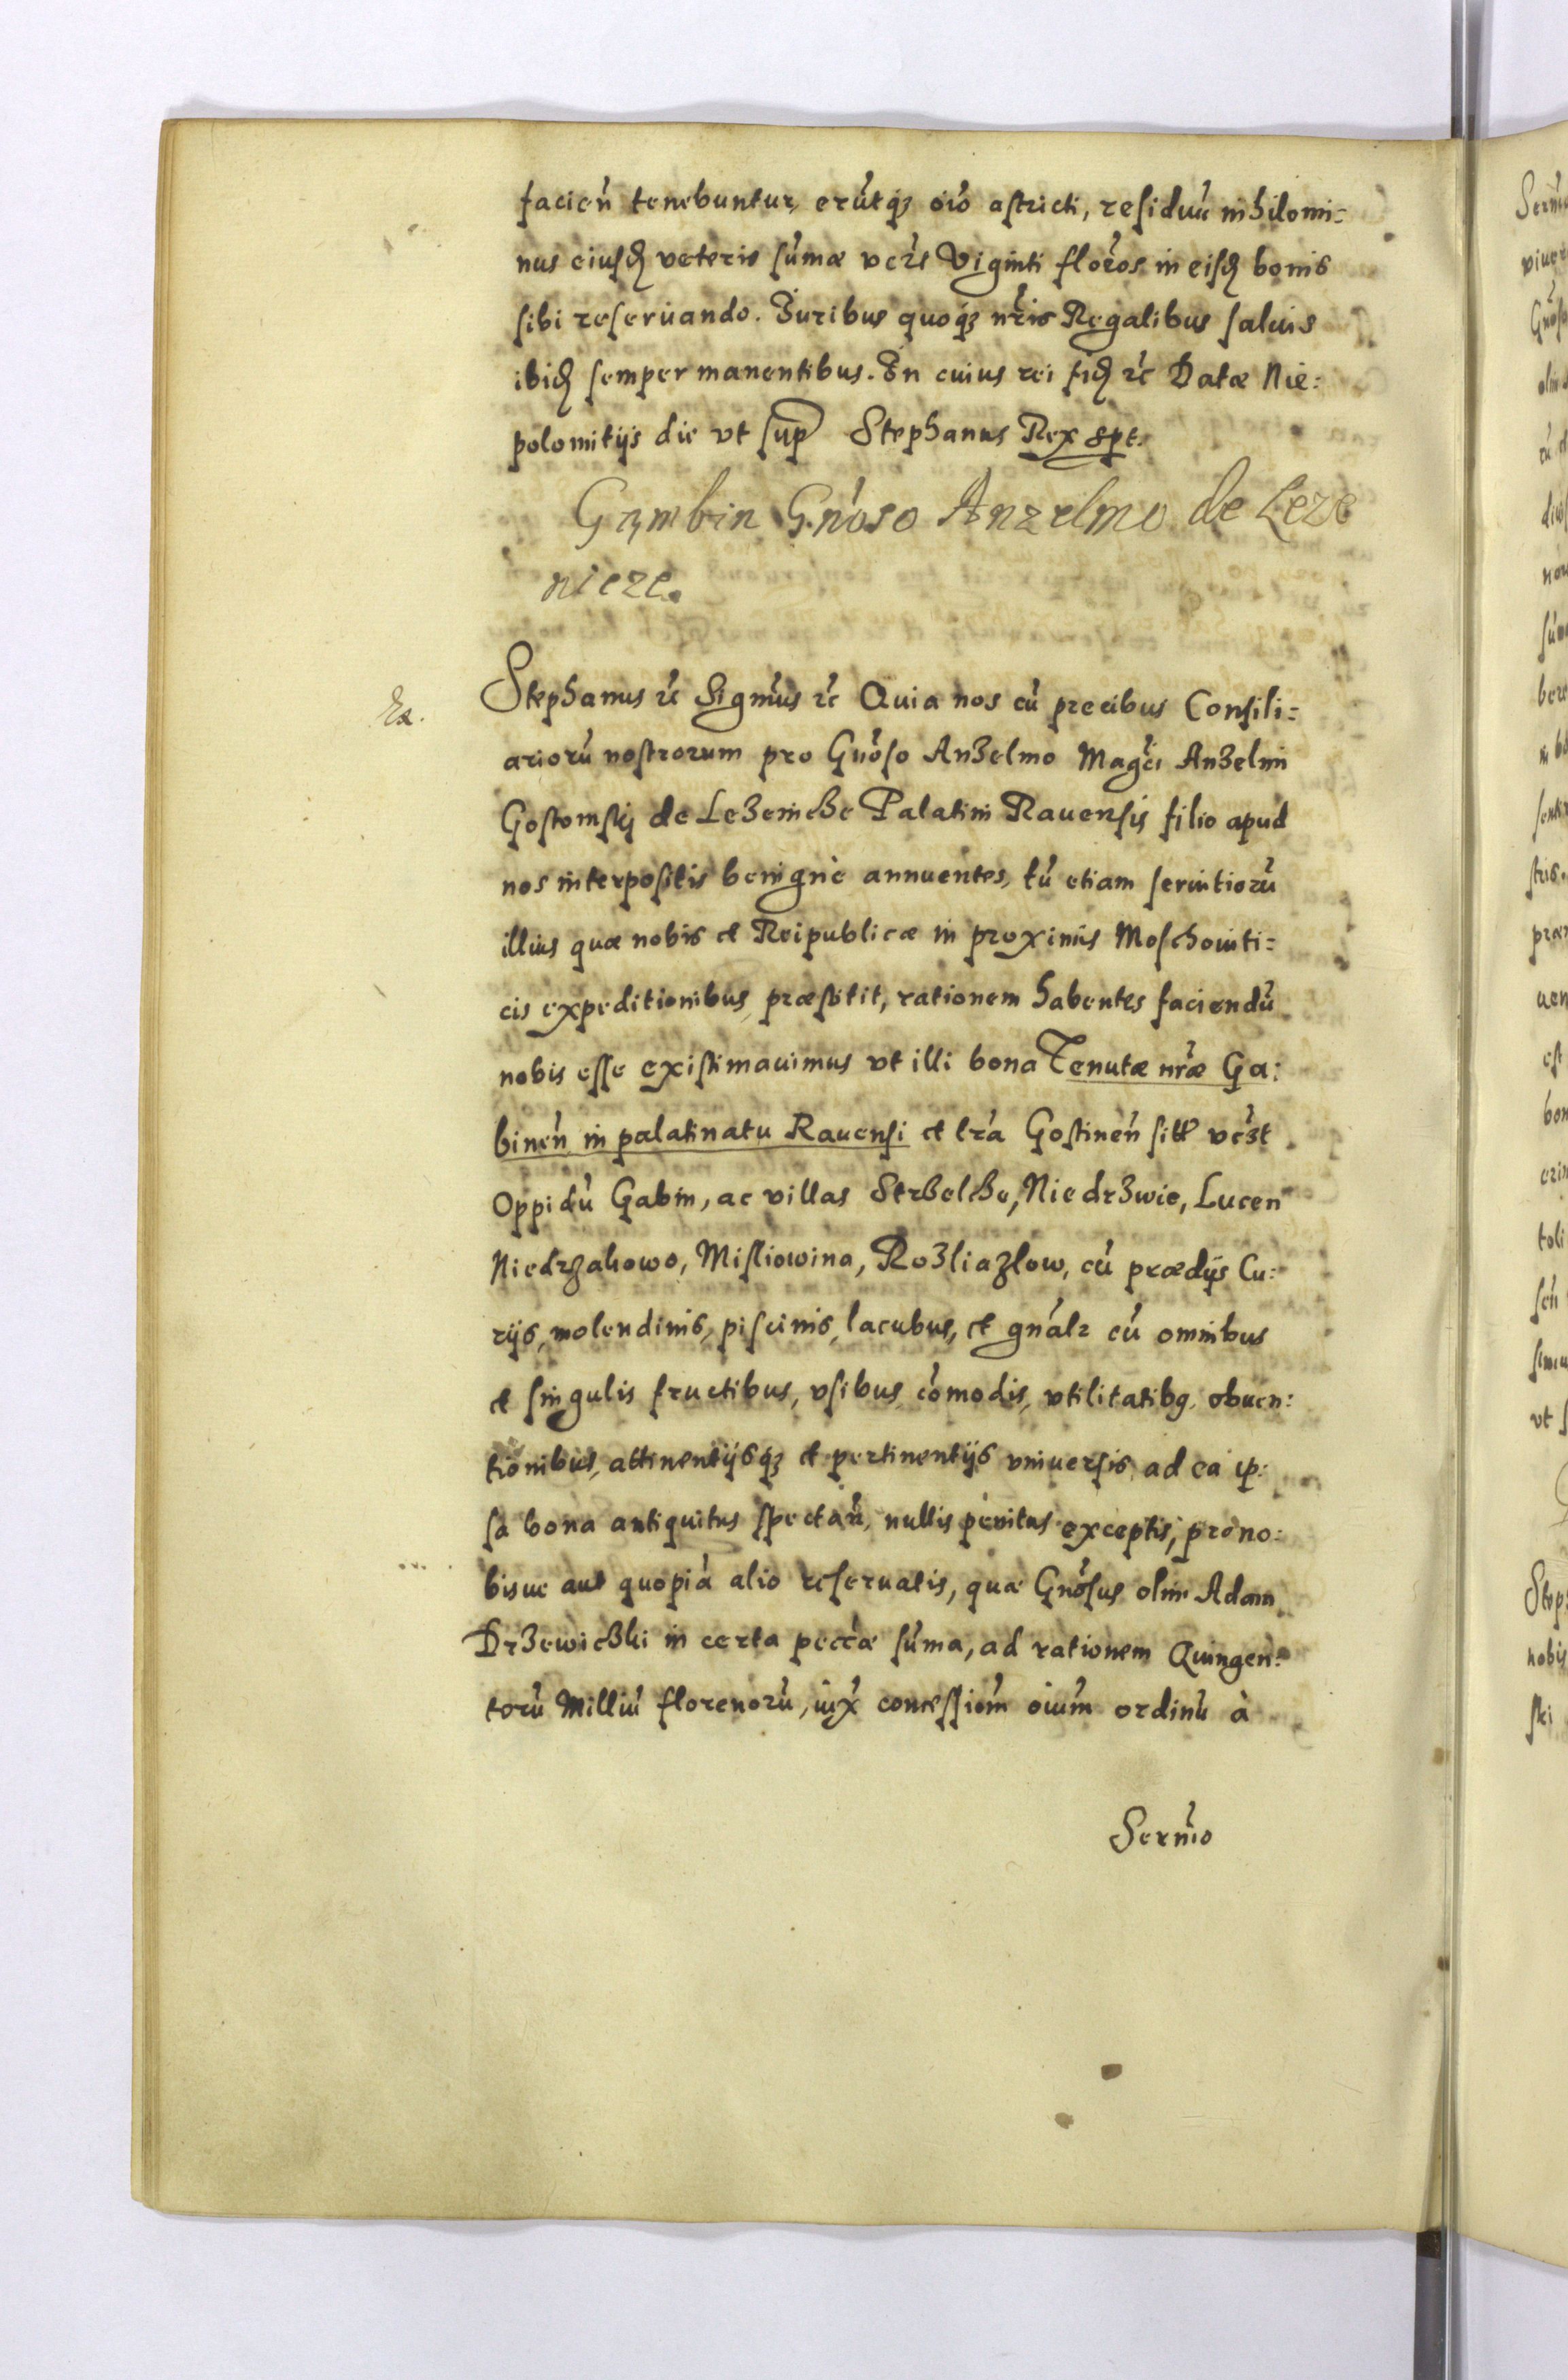 facien̄ tenebuntur, erūtq₃ oīo astricti, residuū nihilomi=
nus eiusd veteris sūmæ vcz̄t Viginti florōs in eisd bonis
sibi reseruando. Iuribus quoq₃ nr̄is Regalibus saluis
ibid semper manentibus. In cuius rei fid rc̄ Datæ Nie:
polomitijs die vt sup Stephanus Rex sprt.
Gąmbin Gn̄oso Anzelmo de Leze
nieze.
Stephanus rc̄ Sigm̄us rc̄ Quia nos cū precibus Consili=
ariorū nostrorum pro Gn̄oso Anzelmo Magc̄i Anzelmi
Gostomskj de Lezeniche Palatini Rauensis filio apud
nos interpositis benignè annuentes, tū etiam seruitiorū
illius quæ nobis et Reipublicæ in proximis Moschouiti=
cis expeditionibus, præstitit, rationem habentes faciendū
nobis esse existimauimus vt illi bona Tenutæ nr̄æ Ga:
binen̄ in palatinatu Rauensi et tr̄a Gostinen̄ sitt vcz̄t
Oppidū Gabin, ac villas Strzelcze, Niedrzwie, Lucen
Niedrzakowo, Misliowina, Rozliazlow, cū prædijs Cu=
rijs, molendinis, piscinis, lacubus, et gn̄alr cū omnibus
et singulis fructibus, vsibus, cōmodis, vtilitatibg, obuen:
tionibus, attinentijsq₃ et pertinentijs vniuersis, ad ea ip:
sa bona antiquitus spectan̄, nullis penitus exceptis, pro no:
bisue aut quopiā alio reseruatis, quæ Gn̄osus olim Adam
Drzewiczki in certa pecc̄æ sūma, ad rationem Quingen=
torū Milliū florenorū, iux concessiom̄ oium̄ ordinū à
Serm̄o